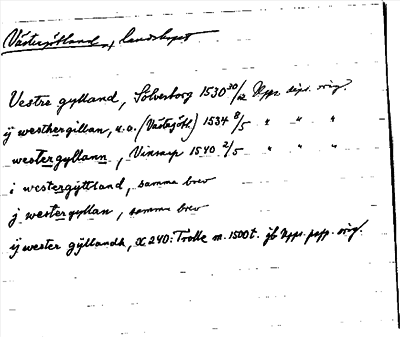 Västergötland, landskapet
Vestre gylland, Sölvesborg 1530 30/12 Uppr. dipl. orig.
ÿ westhergillan, u.o. (Västergötl.) 1534 8/5 " " "
westergyllann, 1540 2/5 " " "
i westergÿttland, samma brev
j westergyllan, samma brev
ÿ wester gÿllandh, X 240: Trolle m. 1500t. jb Uppr. papp. orig.